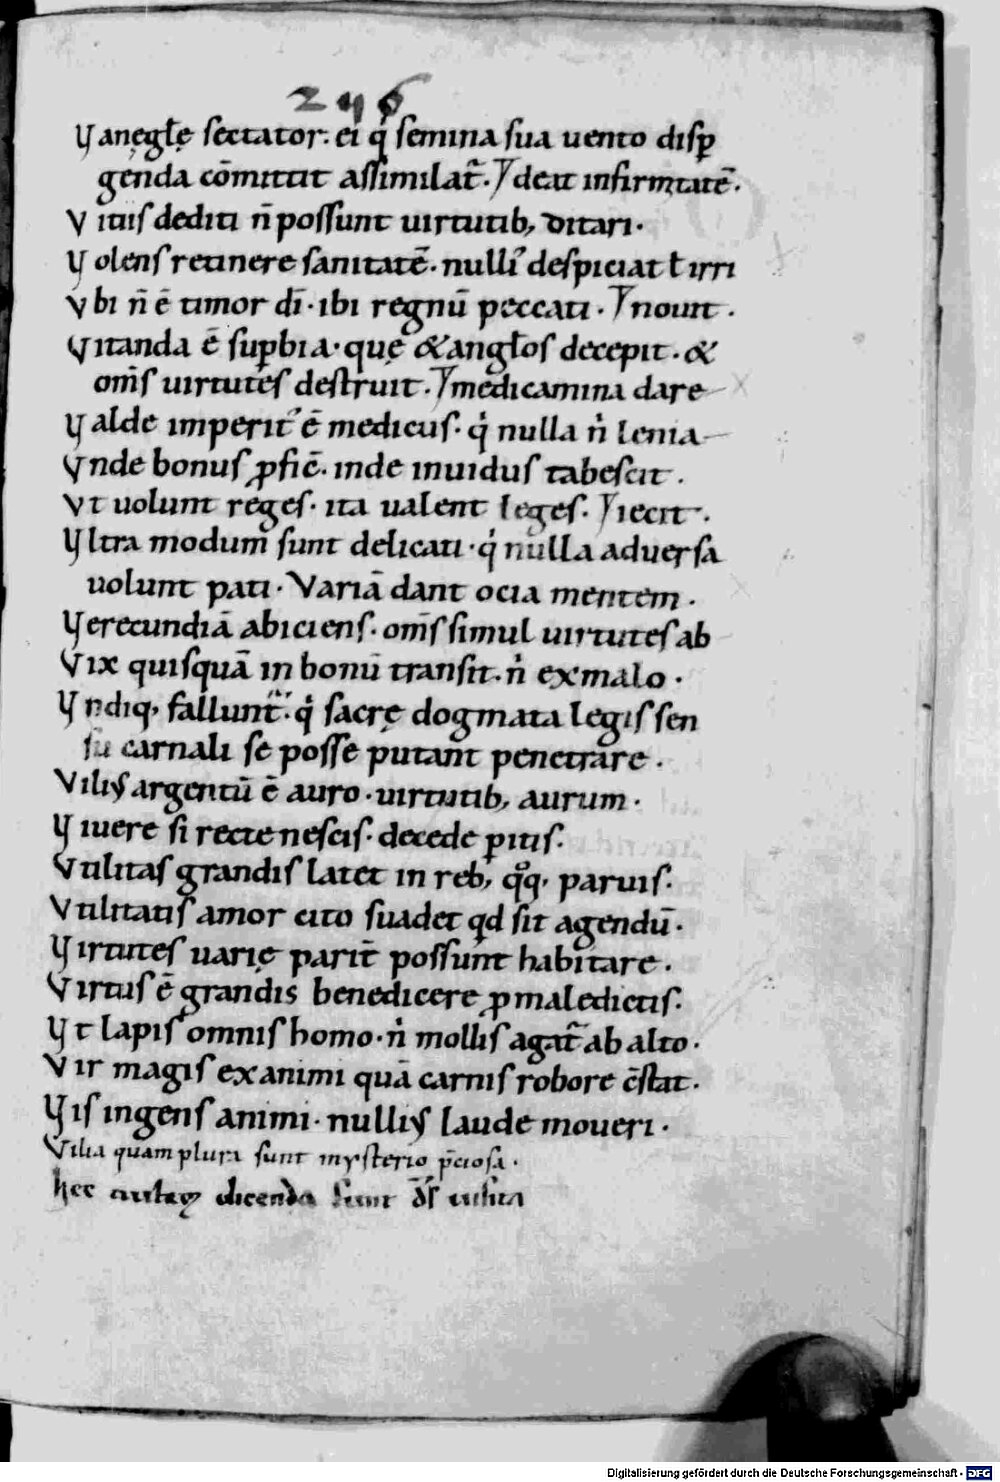 246
Vanęglę sectator. ei q̇ semina sua uento disꝑ
genda cōmittit assimilat᷑. deat infirmitatē.
Vitiis dediti n̄ possunt uirtutib; ditari.
Volens retinere sanitatē. nulli᾿ despiciat ł irri
Vbi n̄ ē timor dī. ibi regnū peccati. nouit.
Vitanda ē suꝑbia. quę & angłos decepit. &
om̄s uirtutes destruit. medicamina dare
Valde imperit᾿ ē medicus. q̇ nulla n̓ lenia
Vnde bonus ꝓfic̄. inde inuidus tabescit.
Vt uolunt reges. ita ualent leges. iecit.
Vltra modum sunt delicati. q̇ nulla aduersa
uolunt pati. Variā dant ocia mentem.
Verecundiā abiciens. om̄s simul uirtutes ab
Vix quisquā in bonū transit. n̓ ex malo.
Vndiq; fallunt᷑. q̇ sacrę dogmata legis sen
su carnali se posse putant penetrare.
Vili᾿ argentū ē auro. uirtutib; aurum.
Viuere si recte nescis. decede ꝑitis.
Vtilitas grandis latet in reb; qͦq; paruis.
Vtilitatis amor cito suadet qd sit agendū.
Virtutes uarię parit̄ possunt habitare.
Virtus ē grandis benedicere ꝓ maledictis.
Vt lapis omnis homo. n̓ mollis agat᷑ ab alto.
Vir magis ex animi quā carnis robore c̄stat.
Vis ingens animi. nulli᾿ laude moueri.
Vilia quam plura sunt mysterio p̄ciosa.
hec dicenda sunt
Digitalisierung gefördert durch die Deutsche Forschungsgemeinschaft - DFG